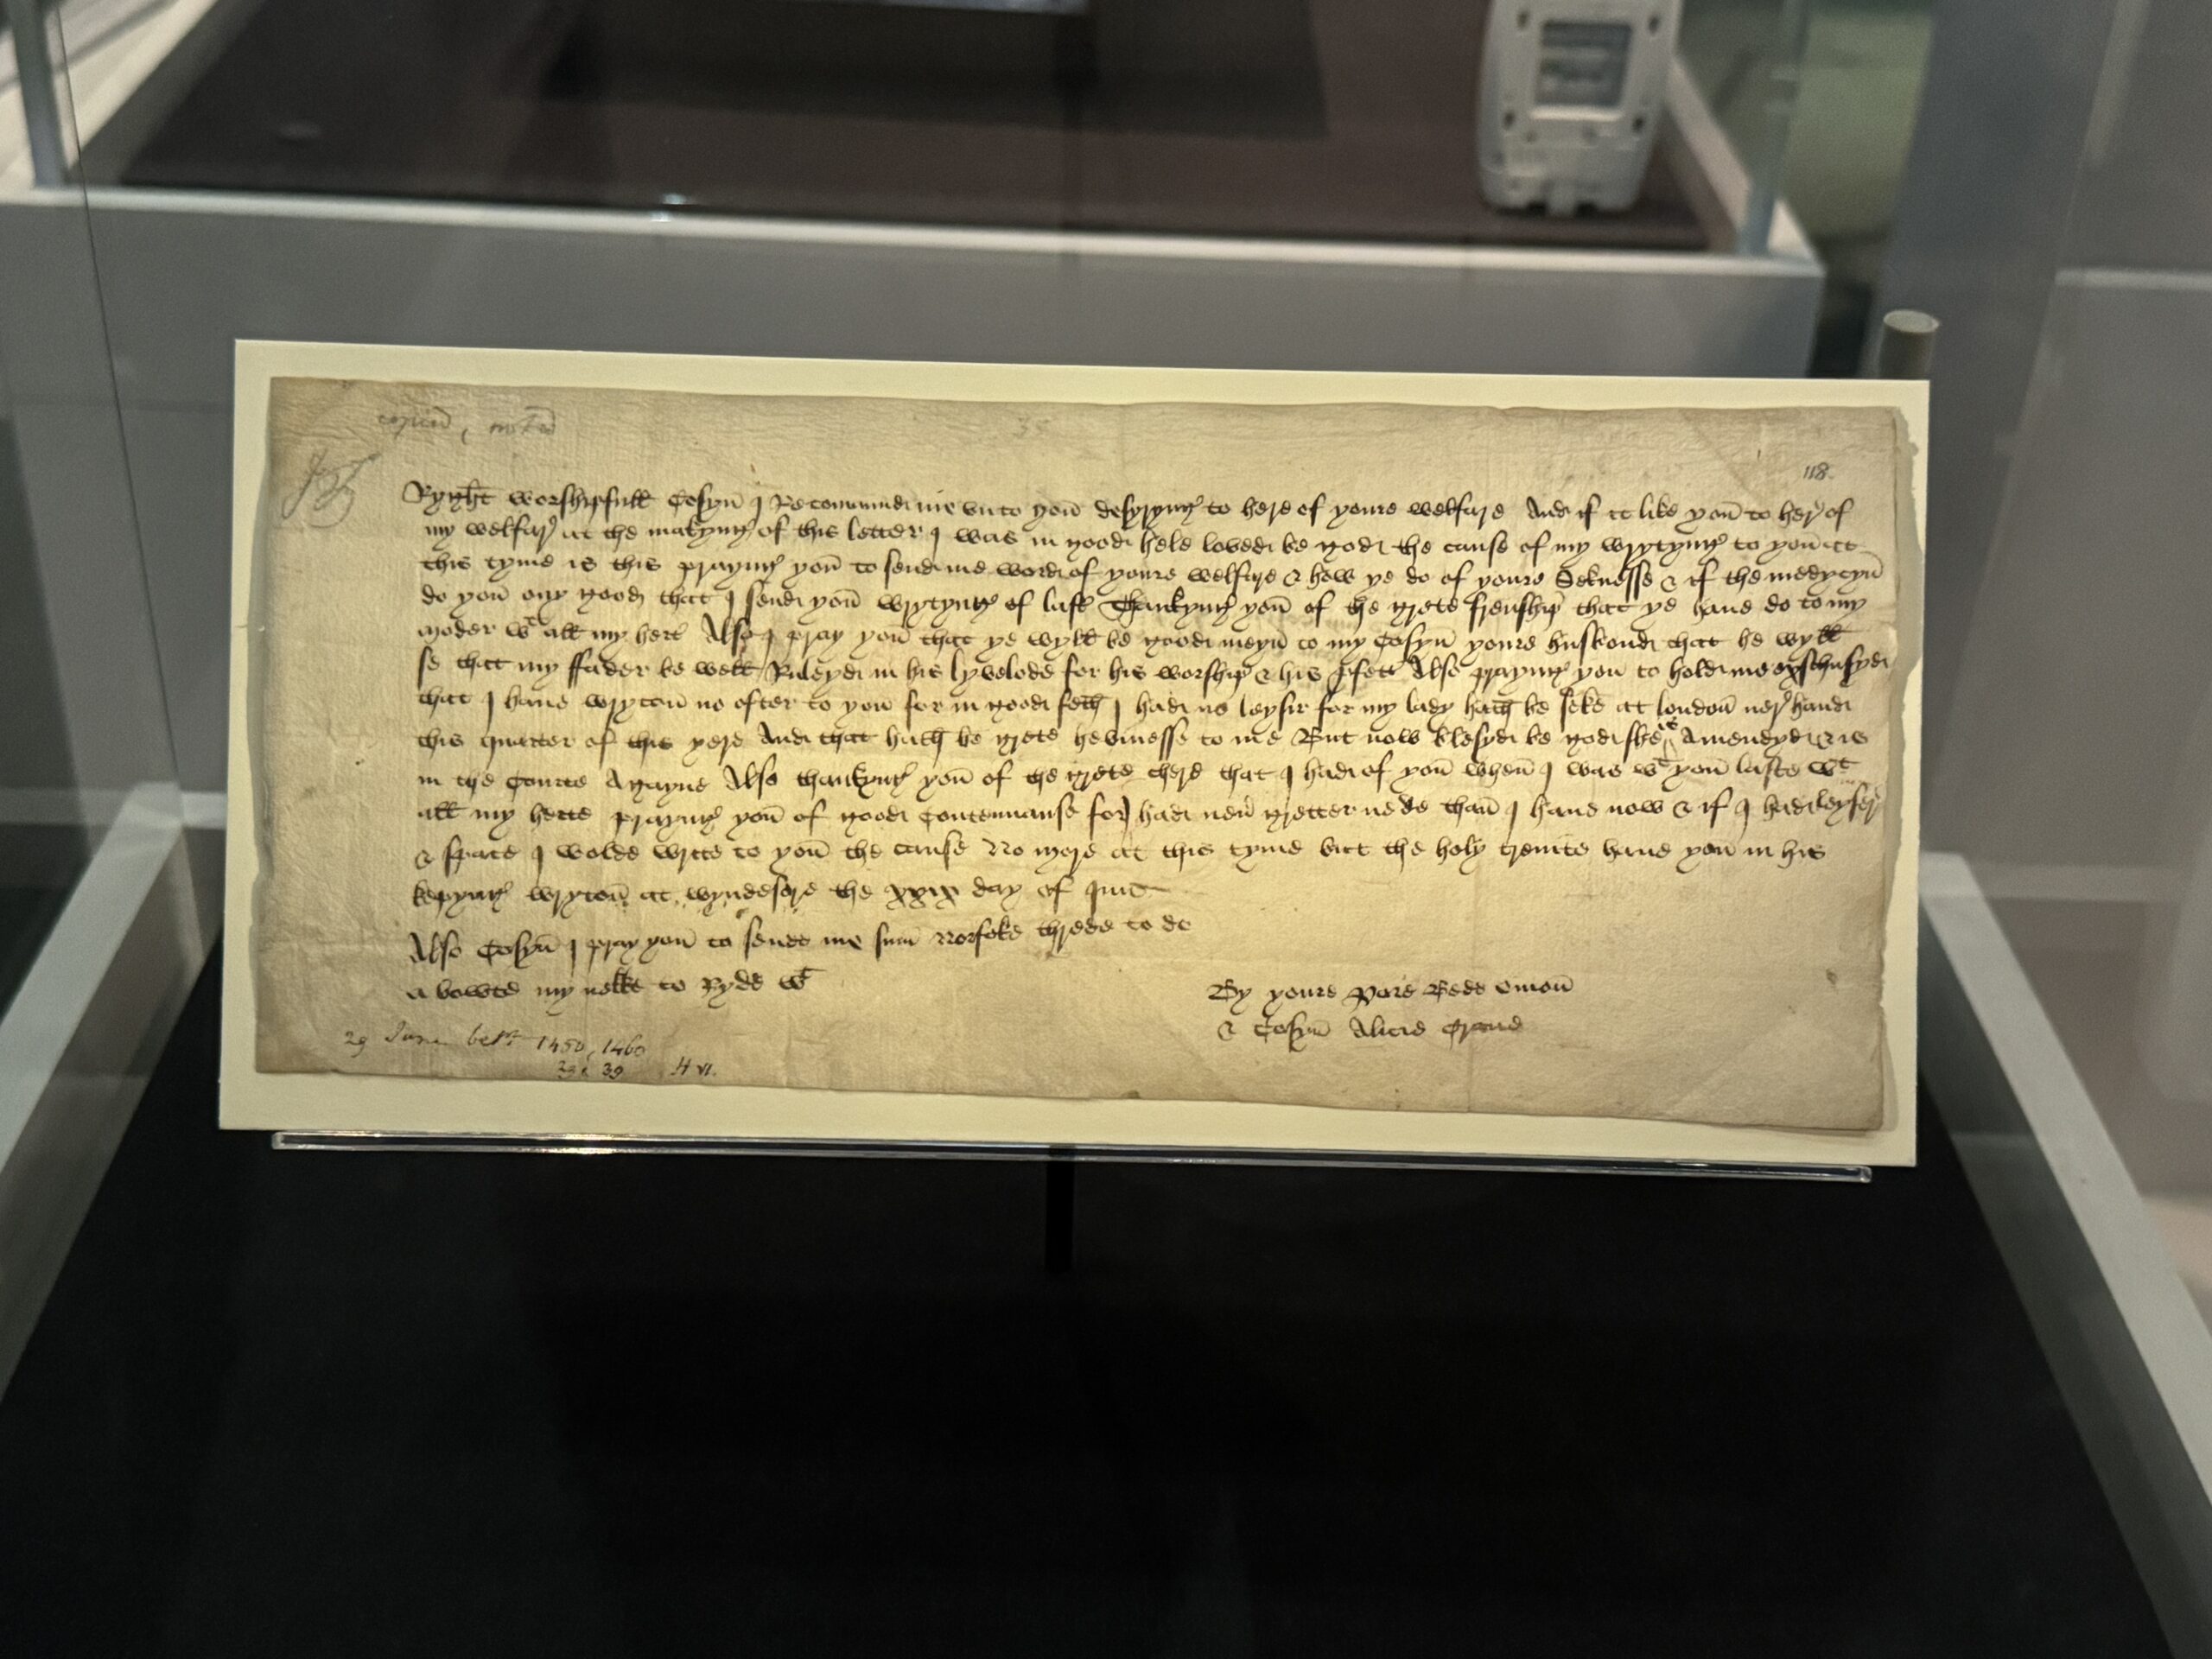 copied, noted
35
118.
Ryght worshipfull Cosyn I Recommaund me vn to you desyryng to here of youre welfare And if it like you to her of
my welfare at the makyng of this letter I was in good hele loved be god the cause of my wrytyng to you att
this tyme is this prayng you to send me word of youre welfare & how ye do of youre Seknesse & if the medycyn
do you ony good that I send you wrytyng of last Thankyng you of the grete frenship that ye haue do to my
moder wt all my hert Also I pray you that ye wyll be good meyn to my Cosyn youre husbond that he wyll
se that my ffader be well Ruleyd in his lyvelode for his worship & his profett Also prayng you to hold me exschusyd
that I haue wryton no ofter to you for in good feth I had no leysir for my lady hath be seke at london ner hand
this quarter of this yere And that hath be grete hevinesse to me But now blesyd be god she is Amendyd & is
in the Courte Agayne Also thankyng you of the grete chere that I had of you when I was wt you laste wt
all my herte prayng you of good Contenuanse for I had neuer gretter nede than I haue now & if I had leyser
& space I wolde write to you the cause No more at this tyme but the holy trenite haue you in his
kepyng wryton at wyndesore the xxix day of June
Also Cosyn I pray you to sende me sum Norfoke threde to do
a bowte my nekke to Ryde wt
By youre Pore Bede woman
& Cosyn Alice Crane
29 June betn. 1450, 1460
39 H VI.